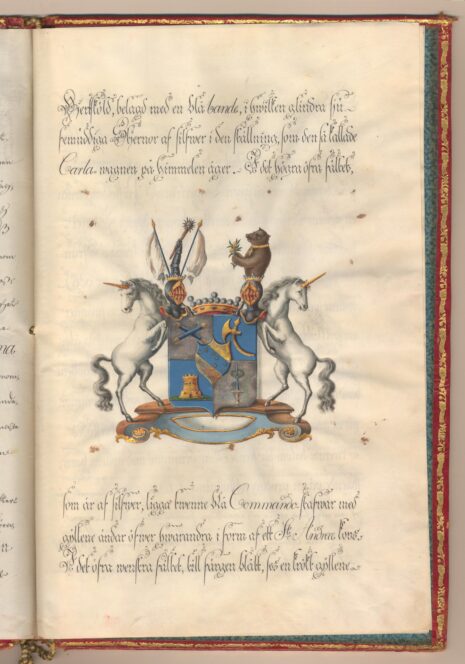 Hertsköld, belagd med en blå bande, i hwilken glindra sju
femuddiga Stiernor af silfwer i den ställning, som den så kallade
Carla-wagnen på himmelen äger. I det högra öfra fältet,
som är af silfwer, ligga twenne blå Commando stafwar med
gyllene ändar öfwer hwarandra i form af ett St. Andreæ kors.
I det öfra wenstra fältet, till färgen blått, ses en krökt gyllene